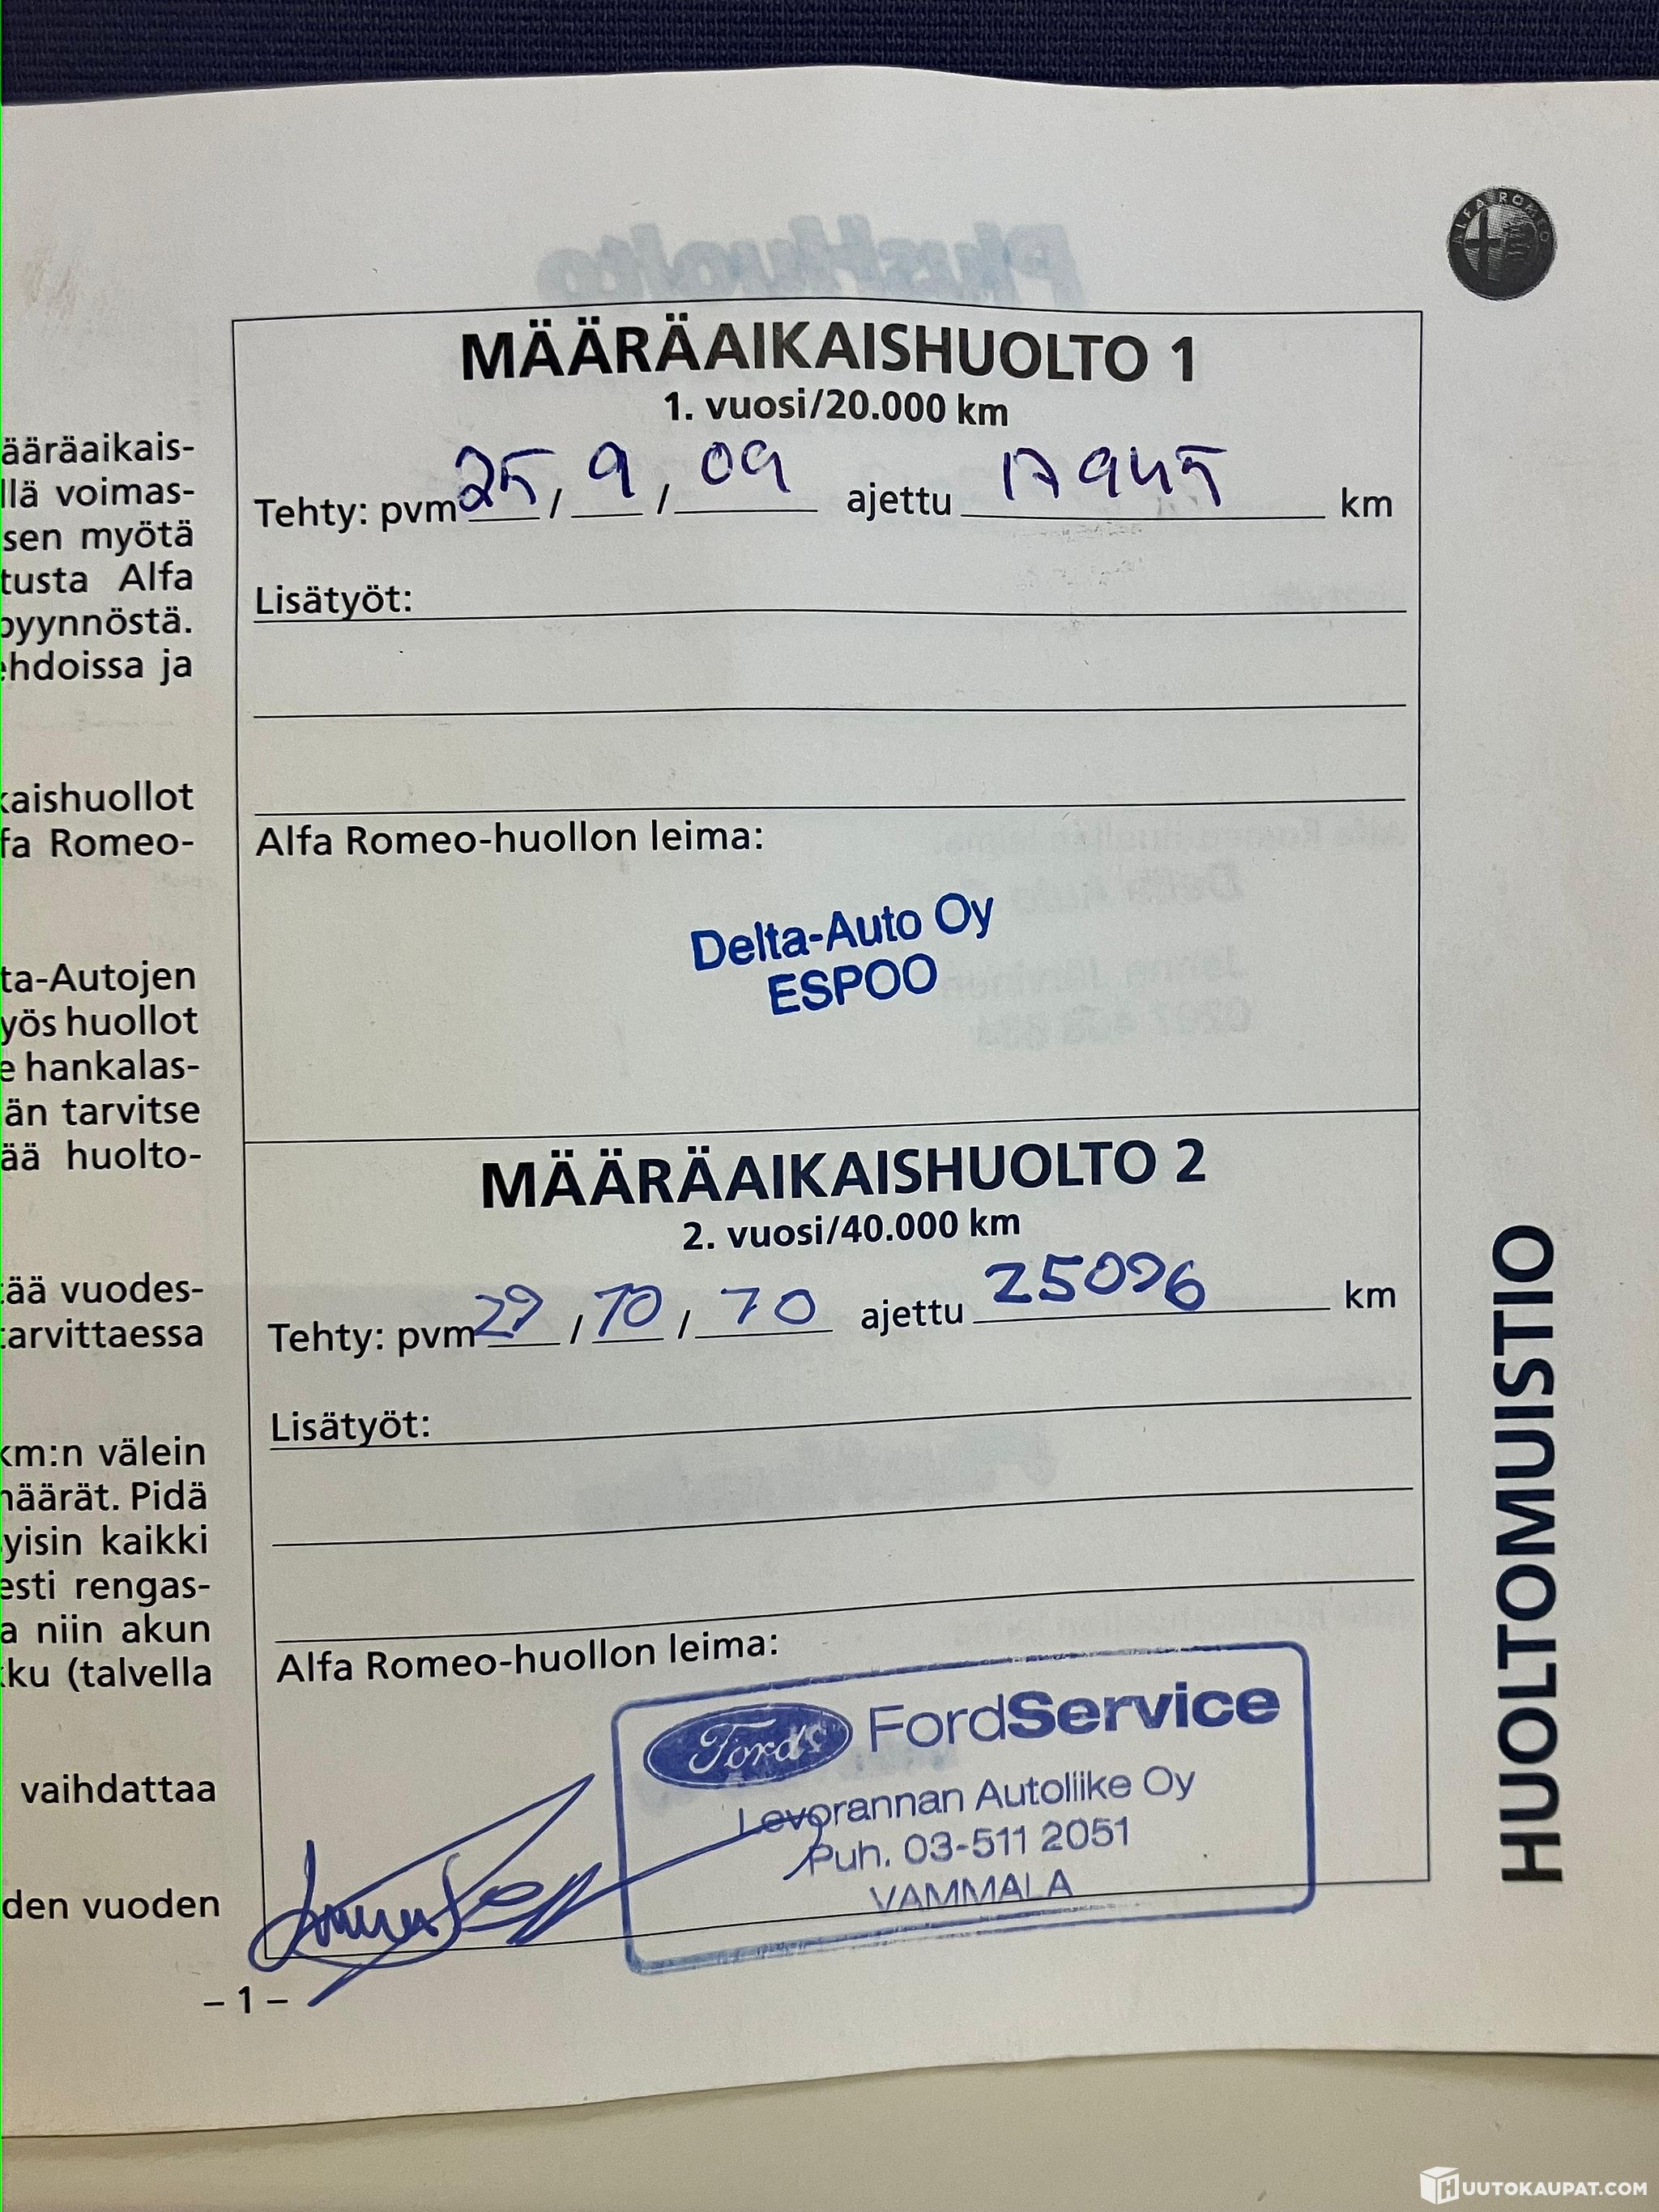 ALFA ROMEO
MÄÄRÄAIKAISHUOLTO 1
1. vuosi/20.000 km
Tehty: pvm 25 / 9 / 09 ajettu 17945 km
Lisätyöt:
Alfa Romeo-huollon leima:
Delta-Auto Oy
ESPOO
MÄÄRÄAIKAISHUOLTO 2
2. vuosi/40.000 km
Tehty: pvm 29 / 10 / 10 ajettu 25096 km
Lisätyöt:
Alfa Romeo-huollon leima:
Ford FordService
Levorannan Autoliike Oy
Puh. 03-511 2051
VAMMALA
– 1 –
HUOLTOMUISTIO
ääräaikais-
llä voimas-
sen myötä
tusta Alfa
pyynnöstä.
ehdoissa ja
kaishuollot
fa Romeo-
ta-Autojen
yös huollot
e hankalas-
än tarvitse
ää huolto-
tää vuodes-
tarvittaessa
km:n välein
määrät. Pidä
yisin kaikki
esti rengas-
a niin akun
kku (talvella
vaihdattaa
den vuoden
HUUTOKAUPAT.COM